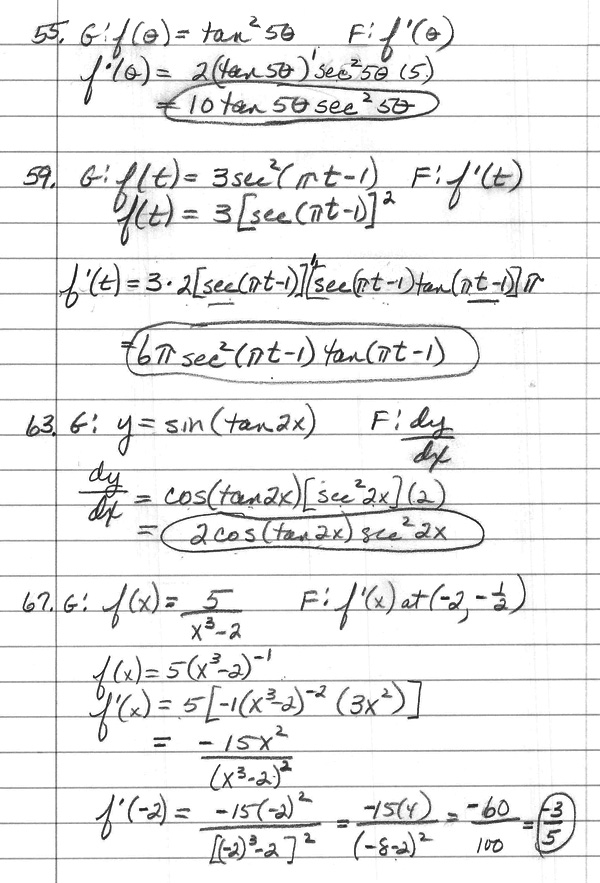 55. G: f(θ) = tan² 5θ F: f'(θ)
f'(θ) = 2(tan 5θ)¹ sec² 5θ (5)
= 10 tan 5θ sec² 5θ
59. G: f(t) = 3 sec² (πt-1) F: f'(t)
f(t) = 3 [sec (πt-1)]²
f'(t) = 3 · 2 [sec(πt-1)]¹ [sec(πt-1) tan(πt-1)] π
= 6π sec² (πt-1) tan(πt-1)
63. G: y = sin (tan 2x) F: dy/dx
dy/dx = cos(tan 2x) [sec² 2x] (2)
= 2 cos (tan 2x) sec² 2x
67. G: f(x) = 5/(x³-2) F: f'(x) at (-2, -1/2)
f(x) = 5(x³-2)⁻¹
f'(x) = 5 [-1(x³-2)⁻² (3x²)]
= -15x²/(x³-2)²
f'(-2) = -15(-2)²/[(-2)³-2]² = -15(4)/(-8-2)² = -60/100 = -3/5